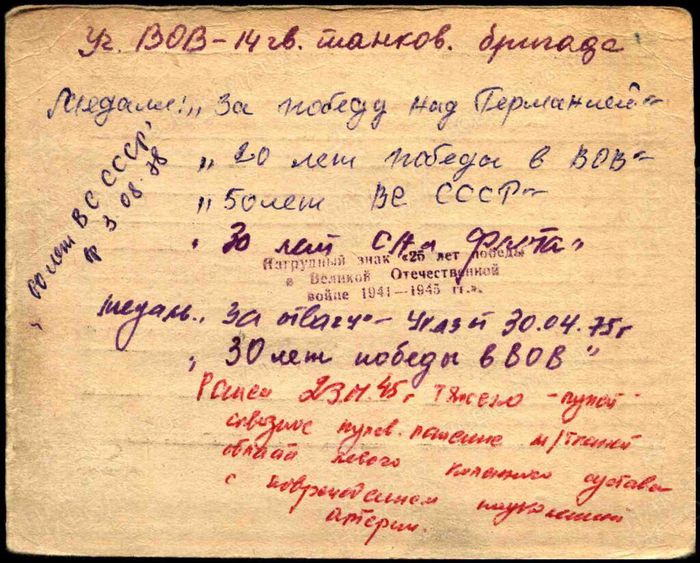 Уч. ВОВ – 14 гв. танков. бригада
Медали: „За победу над Германией"
„20 лет победы в ВОВ"
„50 лет ВС СССР"
„60 лет ВС СССР"
3 08.78
„30 лет СА и Флота"
Нагрудный знак «25 лет победы
в Великой Отечественной
войне 1941—1945 гг.».
медаль „За отвагу" – Указ от 30.04.75 г
„30 лет победы в ВОВ"
Ранен 23.11.45 г. тяжело -
сквозное пулев. ранение м/тканей
области левого коленного сустава
с повреждением
артерии.